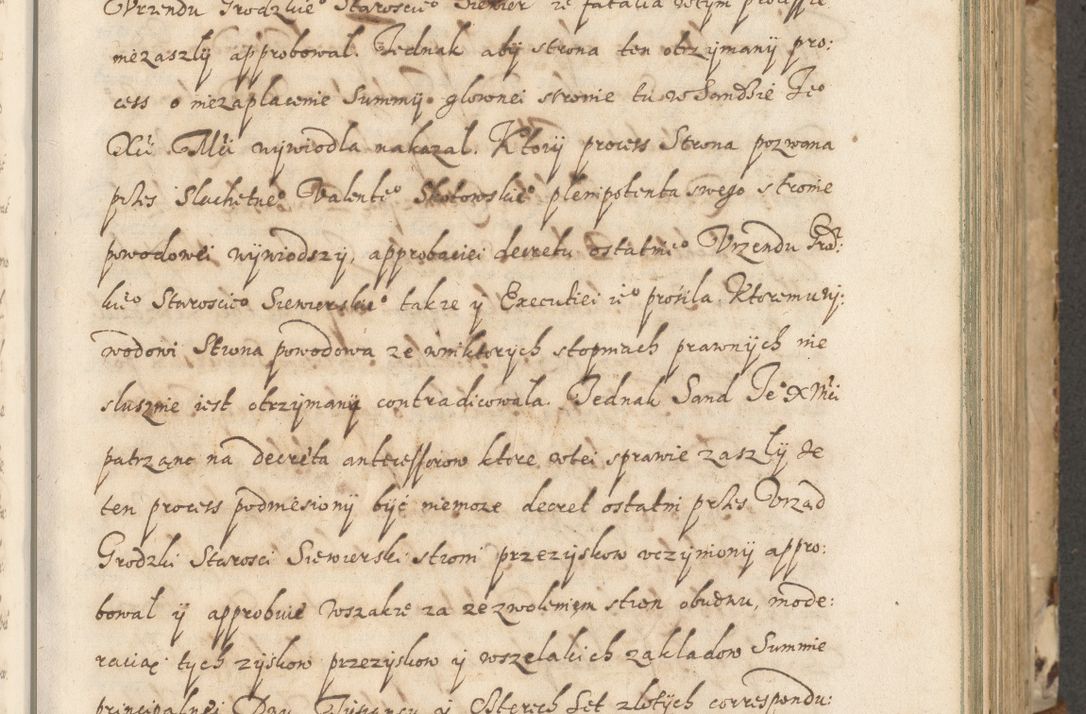 Vrzendu Grodzkie° Staroscie° Siewier ze fatalia wtym processie
niezaszly approbował. Jednak aby strona ten otrzymany pro:
cess o niezaplacenie Summy glownei stronie tu w Sandzie Je°
Xci Mci wywiodla nakazal. Ktory process Strona pozwana
przes Slachetne° Valente° Skotowskie° plenipotenta swego stronie
powodowei wywiodszy, approbaciei decretu ostatnie° Vrzendu Gro:
kie° Staroscie° Siewierskie° takze y Executiei ie° prosila. Ktoremu wy:
wodowi Strona powodowa ze wniktorych stopniach prawnych nie
slusznie iest otrzymany contradicowala. Jednak Sand Je° X Mci
patrzanc na decreta antecessorow ktore wtei sprawie zaszly ze
ten process podniesiony być niemoze decret ostatni przes Vrzad
Grodzki Starosci Siewierski stroni przezyskow vczyniony appro:
bował y approbuie wszakze za zezwoleniem stron obudwu, mode:
racią tych zyskow przezyskow y wszelakich zakladow Summie
principalnei Dwu Tysiency y Czterech Set zlotych correspondu: